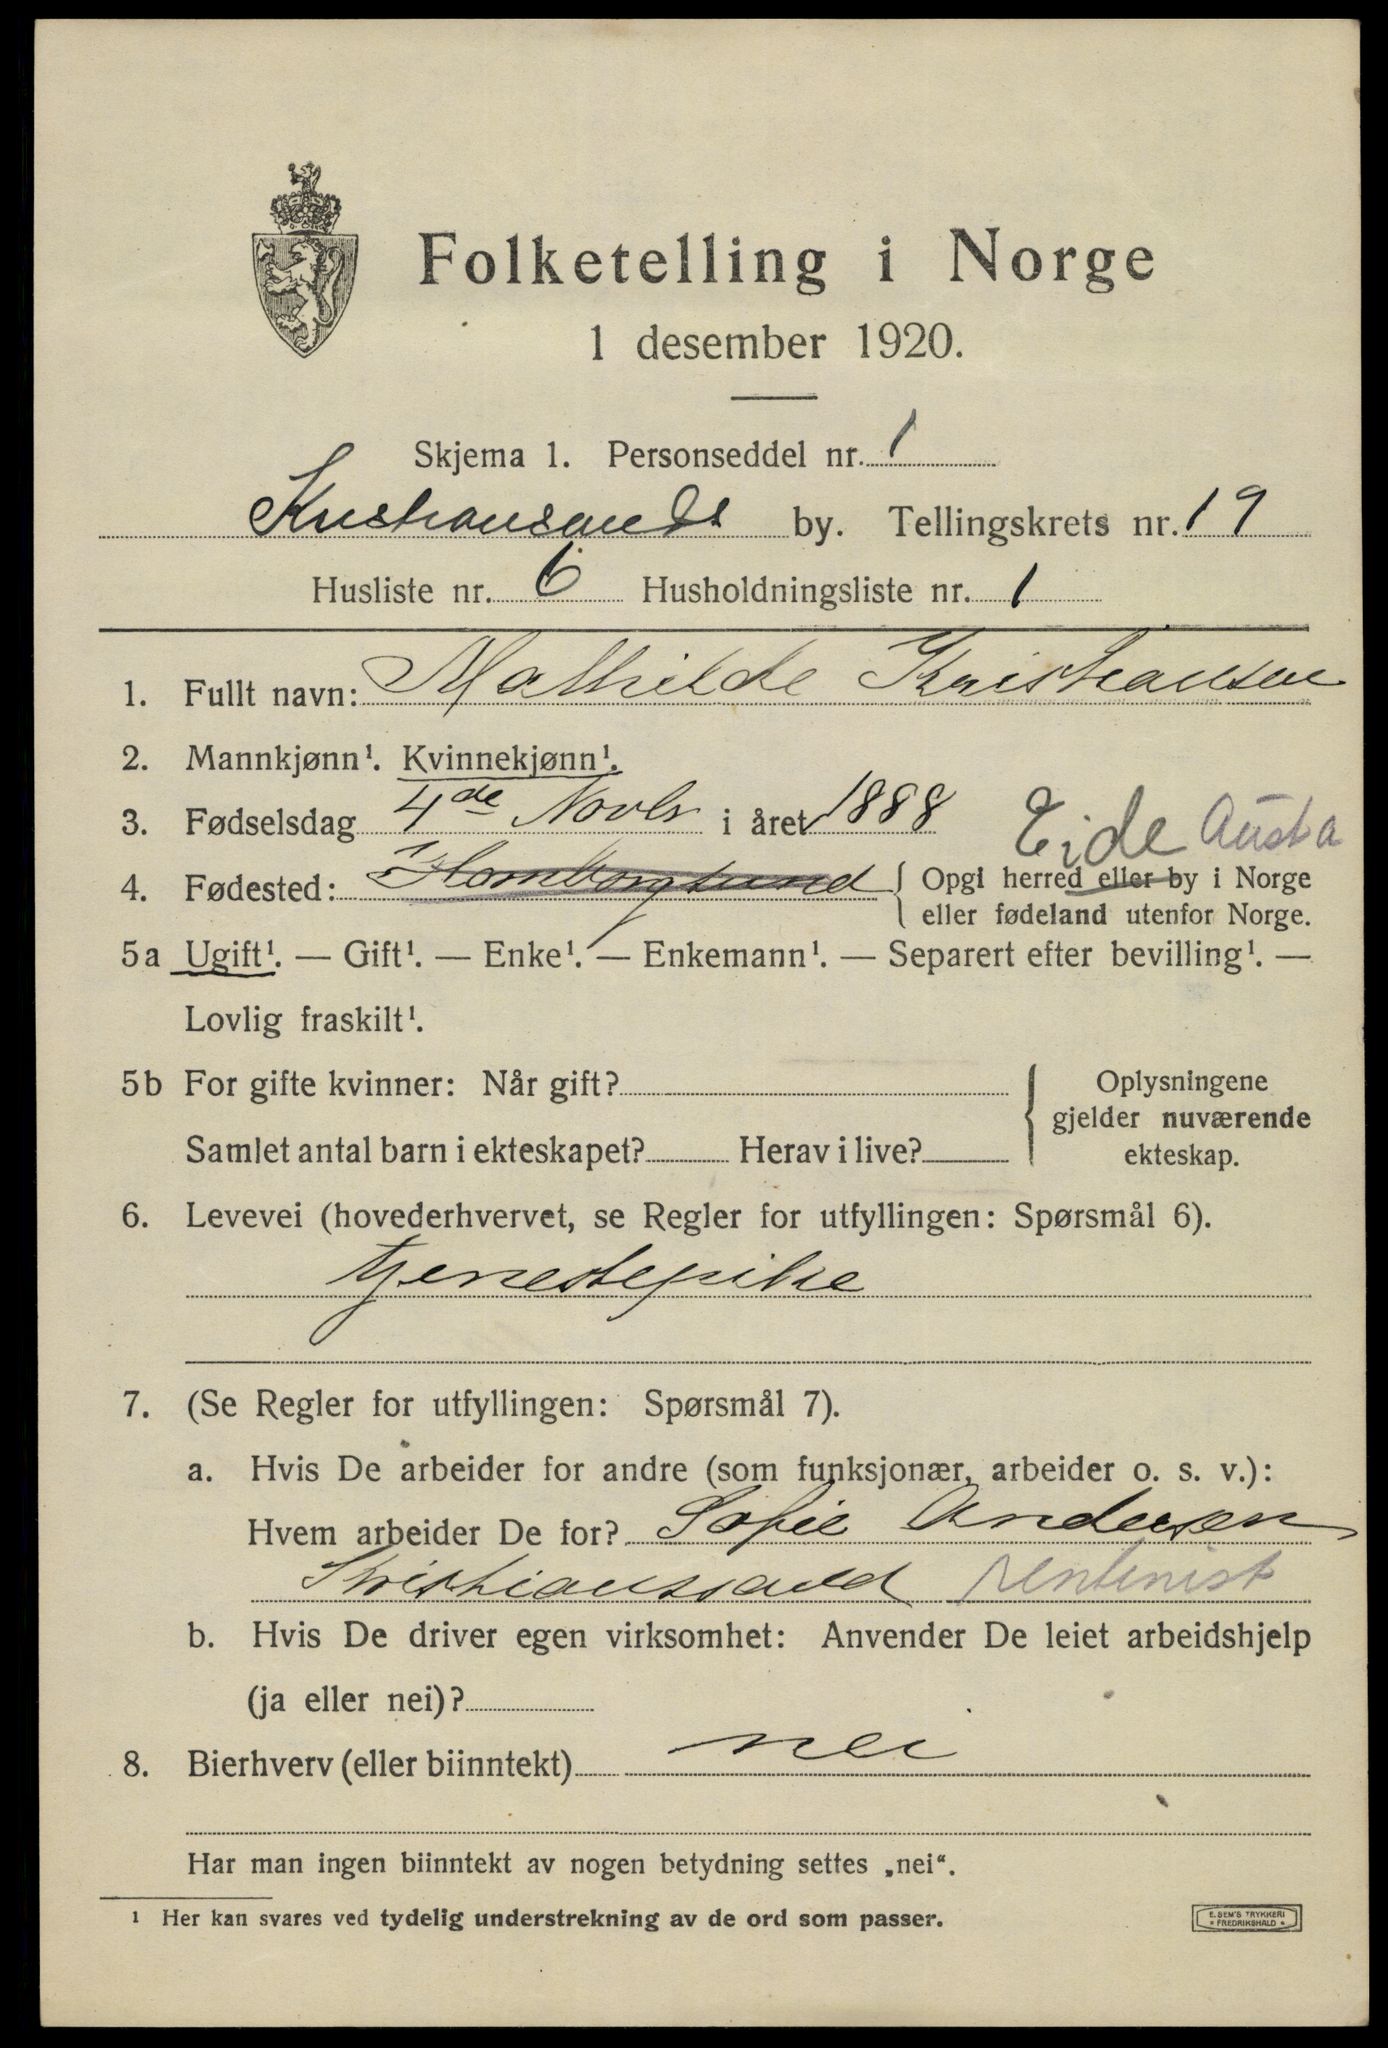 Folketelling i Norge
1 desember 1920.
Skjema 1. Personseddel nr. 1
Kristiansands by. Tellingskrets nr. 19
Husliste nr. 6 Husholdningsliste nr. 1
1. Fullt navn: Mathilde Kristiansen
2. Mannkjønn¹. Kvinnekjønn¹.
3. Fødselsdag 4de Novbr i året 1888 Eide Austa
4. Fødested: Homborgsund { Opgi herred eller by i Norge
eller fødeland utenfor Norge.
5a Ugift¹. — Gift¹. — Enke¹. — Enkemann¹. — Separert efter bevilling¹. —
Lovlig fraskilt¹.
5b For gifte kvinner: Når gift?
Samlet antal barn i ekteskapet? Herav i live?
Oplysningene
gjelder nuværende
ekteskap.
6. Levevei (hovederhvervet, se Regler for utfyllingen: Spørsmål 6).
tjenestepike
7. (Se Regler for utfyllingen: Spørsmål 7).
a. Hvis De arbeider for andre (som funksjonær, arbeider o. s. v.):
Hvem arbeider De for? Sofie Andersen
Kristianssand rentenist
b. Hvis De driver egen virksomhet: Anvender De leiet arbeidshjelp
(ja eller nei)?
8. Bierhverv (eller biinntekt) nei
Har man ingen biinntekt av nogen betydning settes „nei“.
¹ Her kan svares ved tydelig understrekning av de ord som passer.
E. SEM'S TRYKKERI
* FREDRIKSHALD *